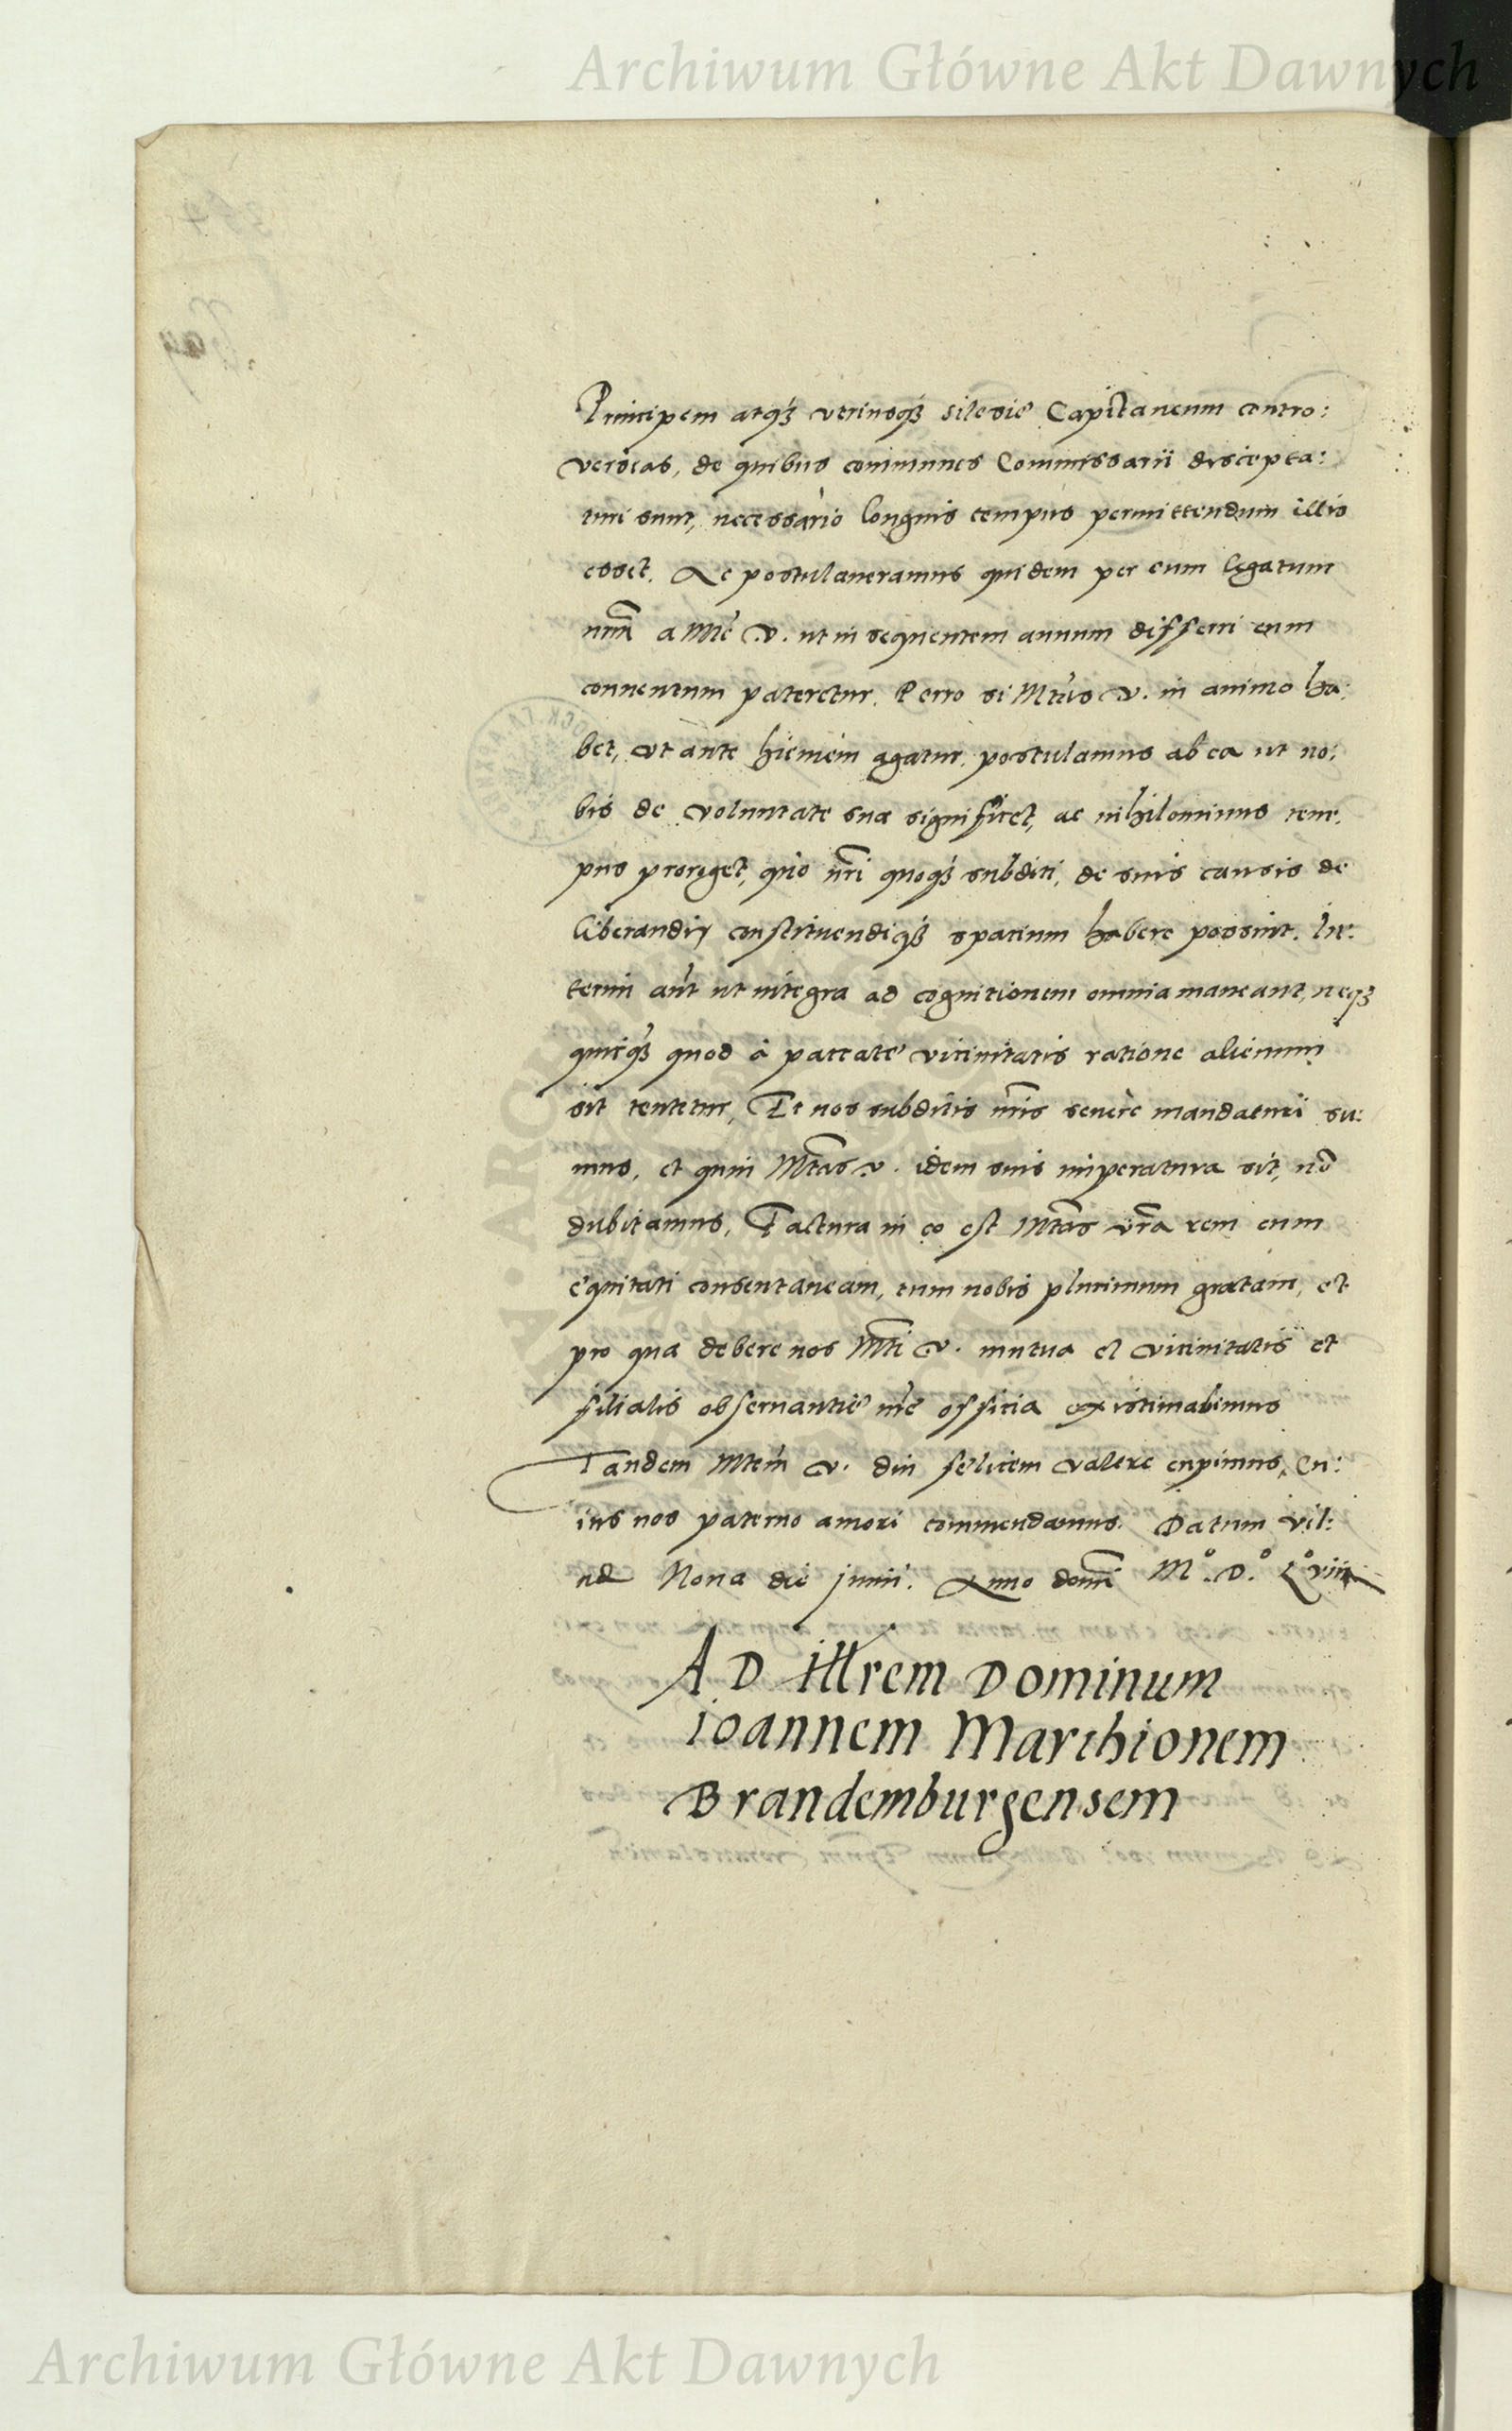 Archiwum Główne Akt Dawnych
Principem atq₃ utriusq₃ silesie Capitaneum contro:
versias, de quibus communes Commissarii discepta:
turi sunt, necessario longius tempus permittendum illis
esset. Ac postulaveramus quidem per eum legatum
nrm̄ a Mte v. ut in sequentem annum differri eum
conventum pateretur. Porro si Mtas v. in animo ha:
bet, ut ante hiemem agatur, postulamus ab ea ut no:
bis de voluntate sua significet, ac nihilominus tem:
pus proroget, quo nr̄i quoq₃ subditi, de suis causis de
liberandi constituendiq₃ spatium habere possint. In:
terim aūt ut integra ad cognitionem omnia maneant, neq₃
quicq₃ quod a paccate vicinitatis ratione alienum
sit tentetur, Et nos subditis nr̄is severe mandaturi su:
mus, et quin Mtas v. idem suis imperatura sit, nō
dubitamus, Factura in eo est Mtas vr̄a rem cum
equitati consentaneam, tum nobis plurimum gratam, et
pro qua debere nos Mti v. mutua et vicinitatis et
filialis observantie nr̄e officia existimabimus
Tandem Mtem v. diu felicem valere cupimus, Cu:
ius nos paterno amori commendamus. Datum Vil:
nae Nona die Junii. Anno domī M°. D°. L°viii
AD illrem Dominum
ioannem Marchionem
Brandemburgensem
Archiwum Główne Akt Dawnych